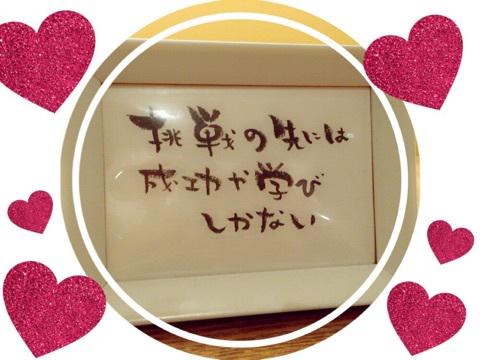 挑戦の先には
成功や学び
しかない